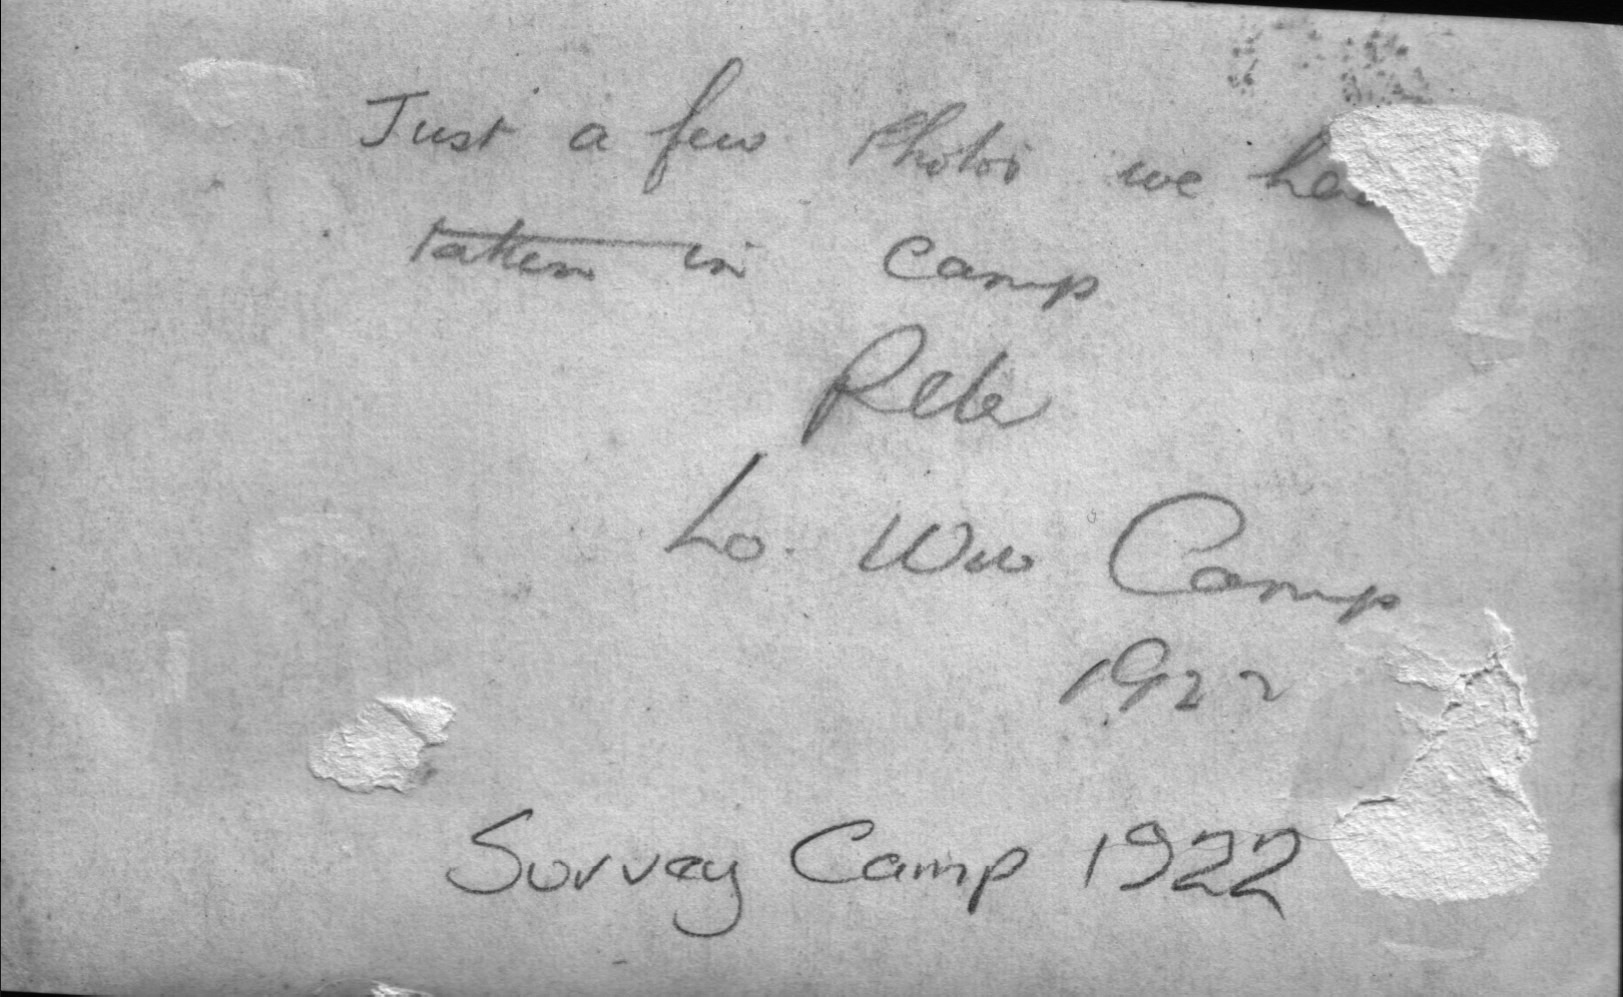 Just a few Photos we ha
taken in camp
Pete
Lo Wu Camp
1922
Survey Camp 1922